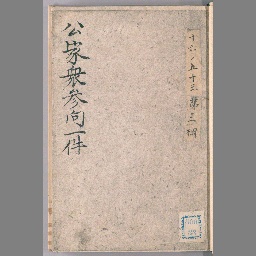 十六ノ五十三 第三冊
公家衆参向一件